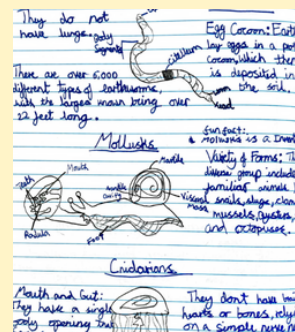 They do not
have lungs.
Body
Segments
clitellum
Head
Egg Cocoon: Earth
lay eggs in a
cocoon, which then
is deposited in
the soil.
There are over 6,000
different types of earthworms,
with the largest being over
22 feet long.
Mollusks
fun fact:
Mollusks is a
Variety of Forms: Th
diverse group include
familiar animals
snails, slugs, clam
mussels, oysters,
and octopuses.
Mouth
Mantle
Mantle
Cavity
Visceral
Mass
Radula
Foot
Cnidarians
Mouth and Gut:
They have a single
body opening that
They don't have
hearts or bones, rely
on a simple nerve n